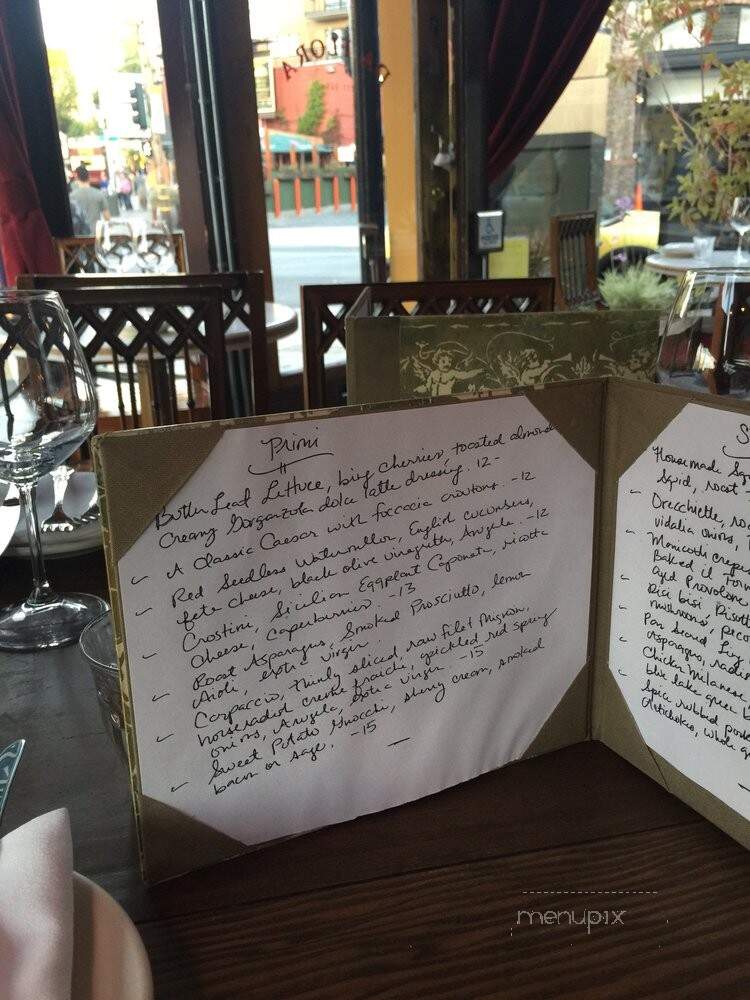 Primi
Butter Leaf Lettuce, bing cherries, toasted almond
Creamy Gorgonzola dolce latte dressing. 12-
A Classic Caesar with foccacia croutons. -12
Red Seedless Watermellon, English cucumbers,
feta cheese, black olive vinagrette, Arugula. -12
Crostini, Sicilian Eggplant Caponata, ricotta
Cheese, Caperberries. -13
Roast Asparagus, Smoked Prosciutto, lemon
Aioli, extra virgin.
Carpaccio, thinly sliced, raw filet mignon,
horseradish creme fraiche, pickled red spring
onions, Arugula, extra virgin. -15
Sweet Potato Gnocchi, sherry cream, smoked
bacon or sage. -15
S
Housemade
Squid, roast
Orecchiette,
vidalia onions,
Manicotti crepes
Baked il forn
aged Provolone
Risi bisi Risott
mushrooms, peco
Pan Seared
Asparagus, radis
Chicken Milanese
blue lake green
Spice rubbed pork
Artichokes, whole g
menupix